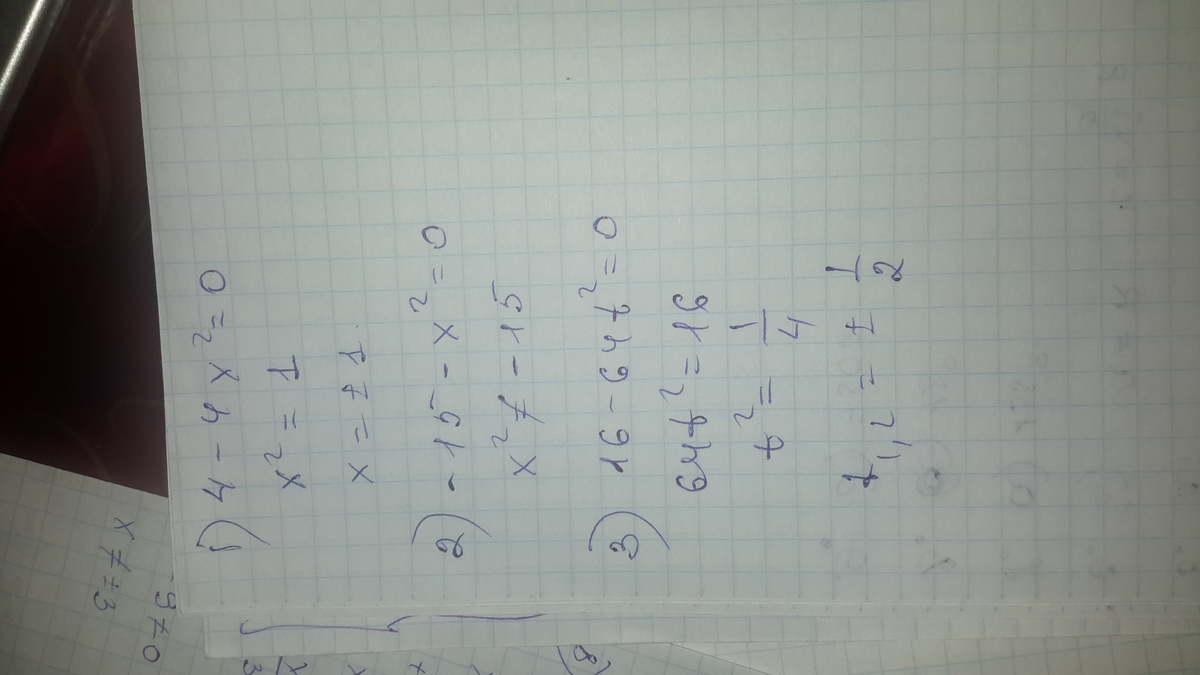 1) 4 - 4x² = 0
x² = 1
x = ± 1.
2) -15 - x² = 0
x² ≠ -15
3) 16 - 64t² = 0
64t² = 16
t² = 1/4
t₁,₂ = ± 1/2
x ≠ ±3
-9 ≠ 0
8)